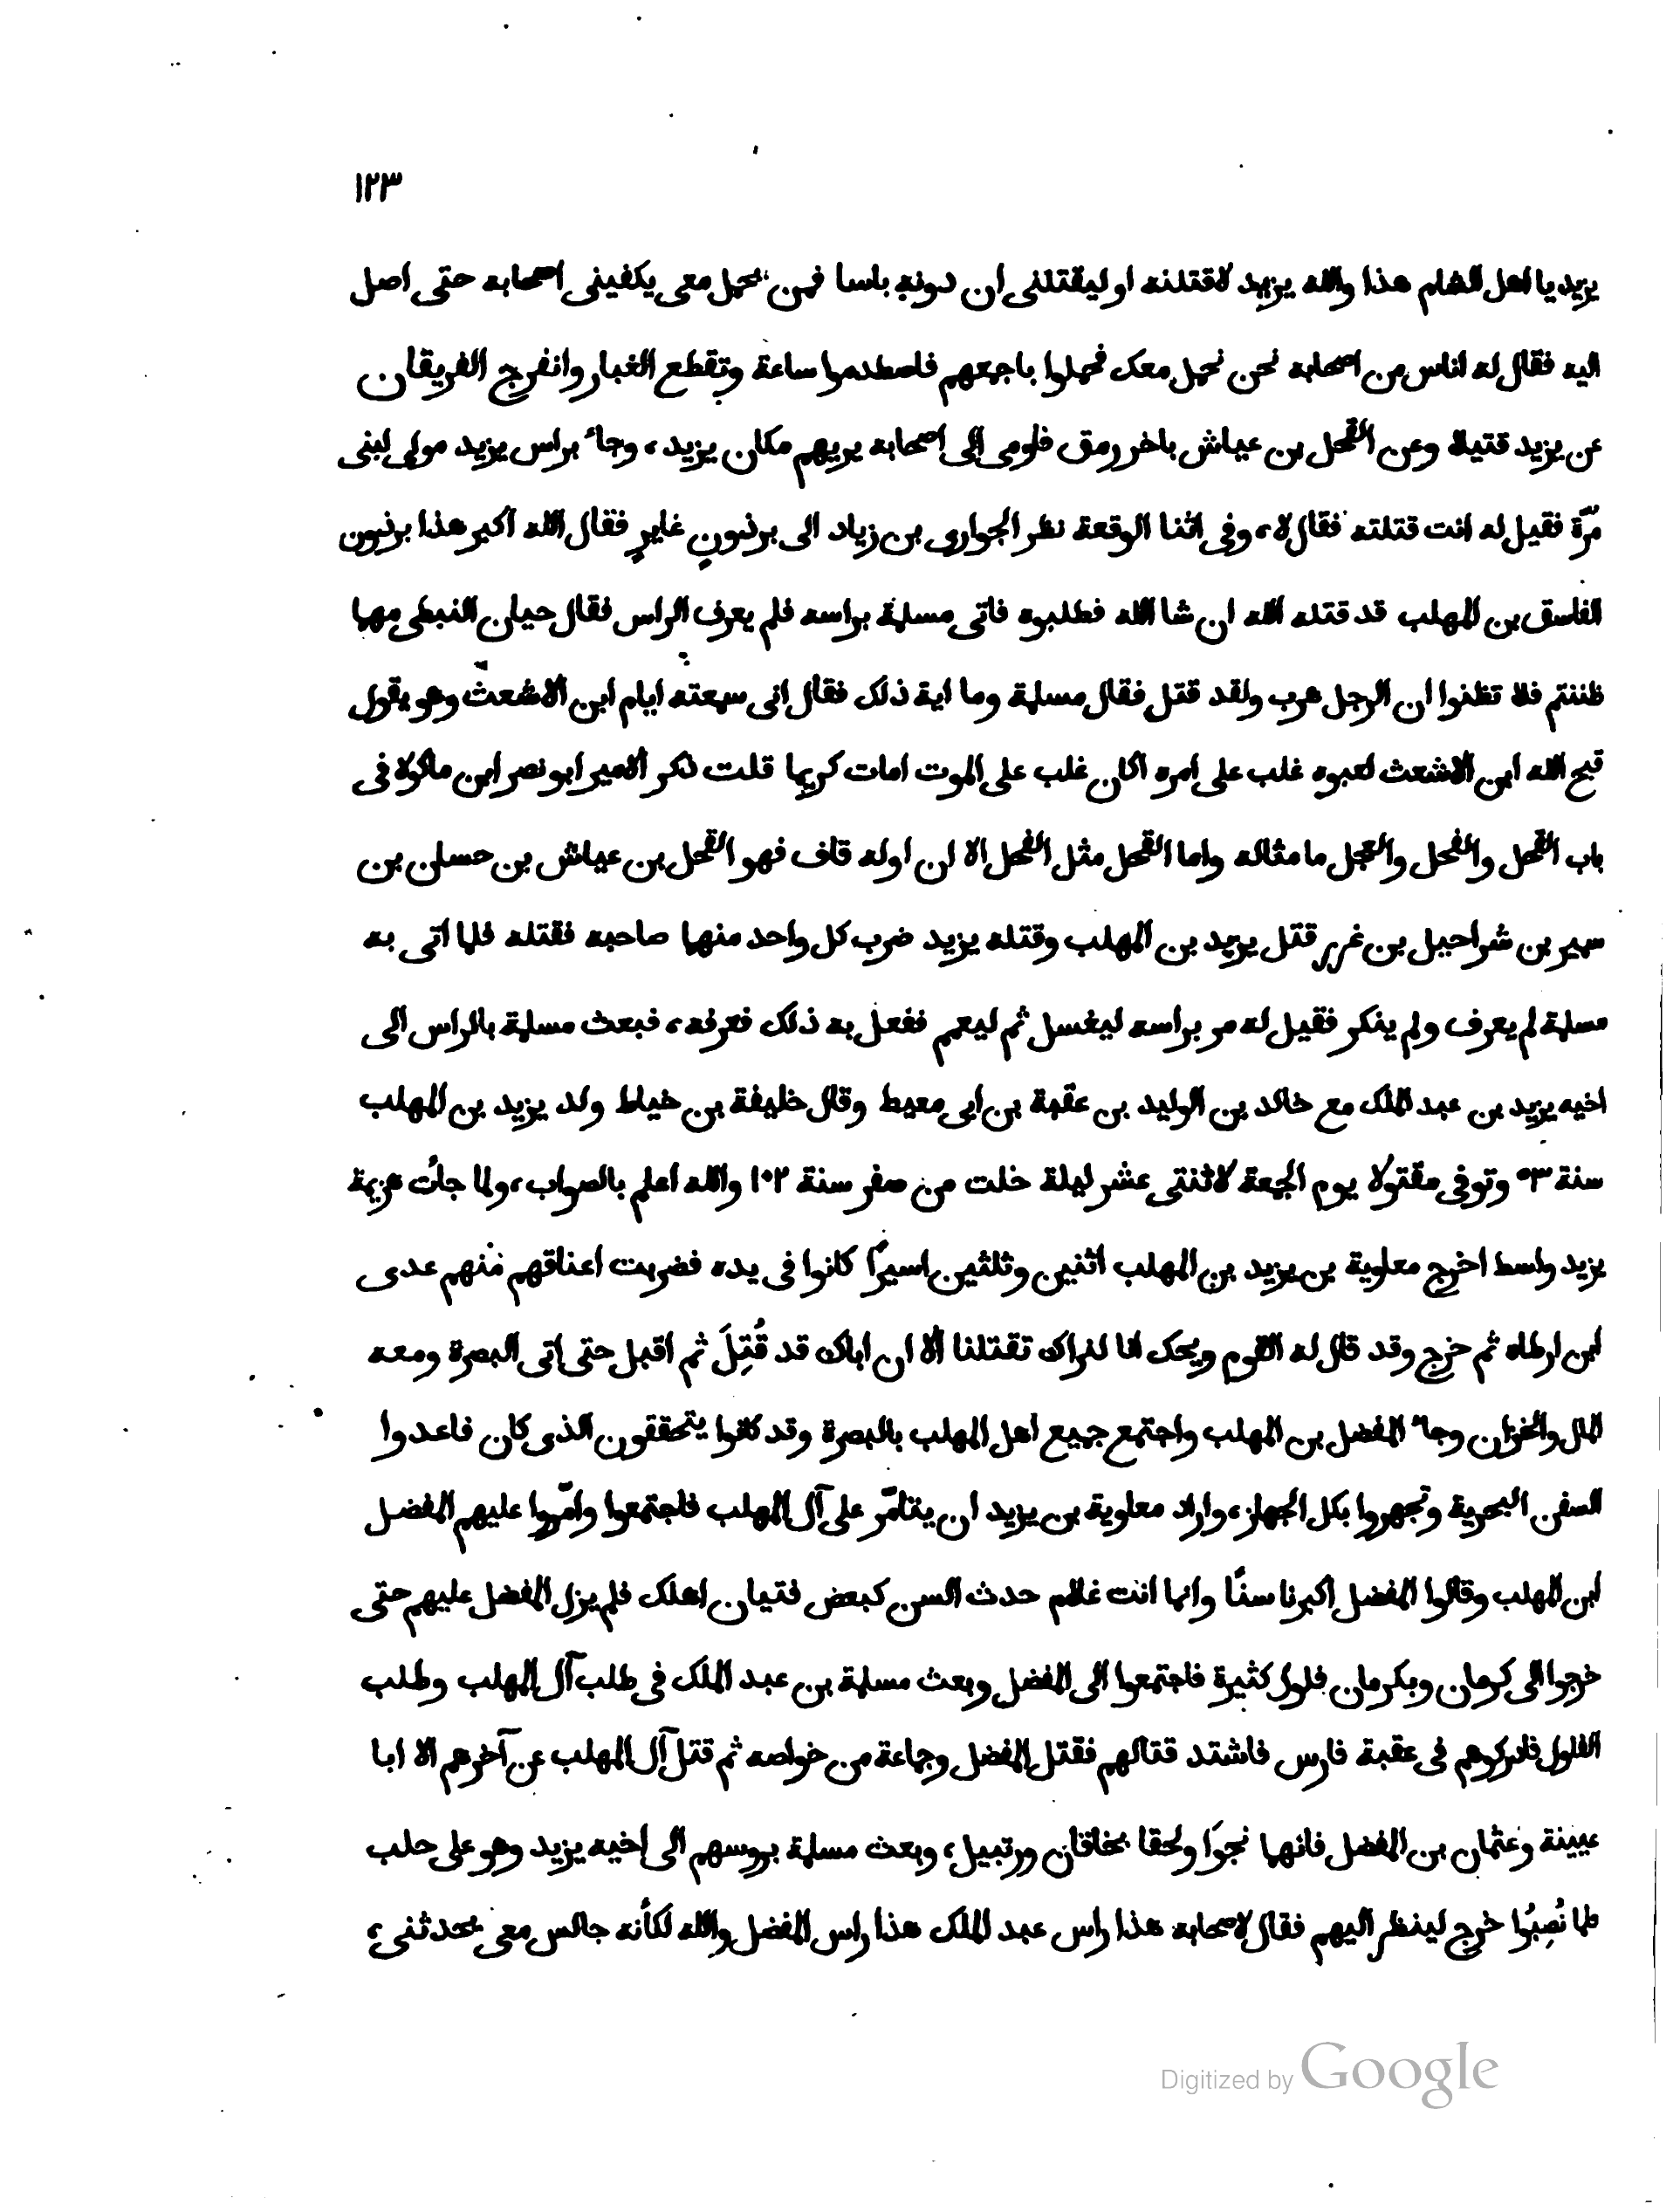 ١٢٣
يزيد يا اهل الشام هذا والله يزيد لاقتلنه او ليقتلنى ان دونه باسا فمن يحمل معى يكفينى اصحابه حتى اصل
اليه فقال له اناس من اصحابه نحن نحمل معك فحملوا باجمعهم فاصطدموا ساعة وتقطع الغبار وانفرج الفريقان
عن يزيد قتيلا وعن القحل بن عياش باخر رمق فاومى الى اصحابه يريهم مكان يزيد، وجاء براس يزيد مولى لبنى
مرّة فقيل له انت قتلته فقال لا، وفى اثنا الوقعة نظر الجوارى بن زياد الى برذون غاير فقال الله اكبر هذا برذون
الفاسق بن المهلب قد قتله الله ان شا الله فطلبوه فاتى مسلمة براسه فلم يعرف الراس فقال حيان النبطى مهما
ظننتم فلا تظنوا ان الرجل هرب ولقد قتل فقال مسلمة وما اية ذلك فقال انى سمعته ايام ابن الاشعث وهو يقول
قبح الله ابن الاشعث لعبوه غلب على امره اكان غلب على الموت امات كريما قلت ذكر الامير ابو نصر ابن ماكولا فى
باب القحل والفحل والعجل ما مثاله واما القحل مثل الفحل الا ان اوله قاف فهو القحل بن عياش بن حسان بن
سمير بن شراحيل بن غرير قتل يزيد بن المهلب وقتله يزيد ضرب كل واحد منهما صاحبه فقتله فلما اتى به
مسلمة لم يعرف ولم ينكر فقيل له مر براسه ليغسل ثم ليعمم ففعل به ذلك فعرفه، فبعث مسلمة بالراس الى
اخيه يزيد بن عبد الملك مع خالد بن الوليد بن عقبة بن ابى معيط وقال خليفة بن خياط ولد يزيد بن المهلب
سنة ٥٣ وتوفى مقتولا يوم الجمعة لاثنتى عشر ليلة خلت من صفر سنة ١٠٢ والله اعلم بالصواب، ولما جات هزيمة
يزيد واسط اخرج معاوية بن يزيد بن المهلب اثنين وثلثين اسيرًا كانوا فى يده فضربت اعناقهم منهم عدى
ابن ارطاه ثم خرج وقد قال له القوم ويحك انا لنراك تقتلنا الا ان اباك قد قُتِلَ ثم اقبل حتى اتى البصرة ومعه
المال والخزان وجاء المفضل بن المهلب واجتمع جميع اهل المهلب بالبصرة وقد كانوا يتحققون الذى كان فاعدوا
السفن البحرية وتجهزوا بكل الجهاز، واراد معاوية بن يزيد ان يتامّر على آل المهلب فاجتمعوا وامّروا عليهم المفضل
ابن المهلب وقالوا المفضل اكبرنا سنًا وانما انت غلام حدث السن كبعض فتيان اهلك فلم يزل المفضل عليهم حتى
خرجوا الى كرمان وبكرمان فلول كثيرة فاجتمعوا الى المفضل وبعث مسلمة بن عبد الملك فى طلب آل المهلب وطلب
الفلول فادركوهم فى عقبة فارس فاشتد قتالهم فقتل المفضل وجماعة من خواصه ثم قتل آل المهلب عن آخرهم الا ابا
عيينة وعثمان بن المفضل فانهما نجوَا ولحقا بخاقان ورتبيل، وبعث مسلمة بروسهم الى اخيه يزيد وهو على حلب
فلما نُصِبُوا خرج لينظر اليهم فقال لاصحابه هذا راس عبد الملك هذا راس المفضل والله لكأنه جالس معى يحدثنى،
Digitized by Google